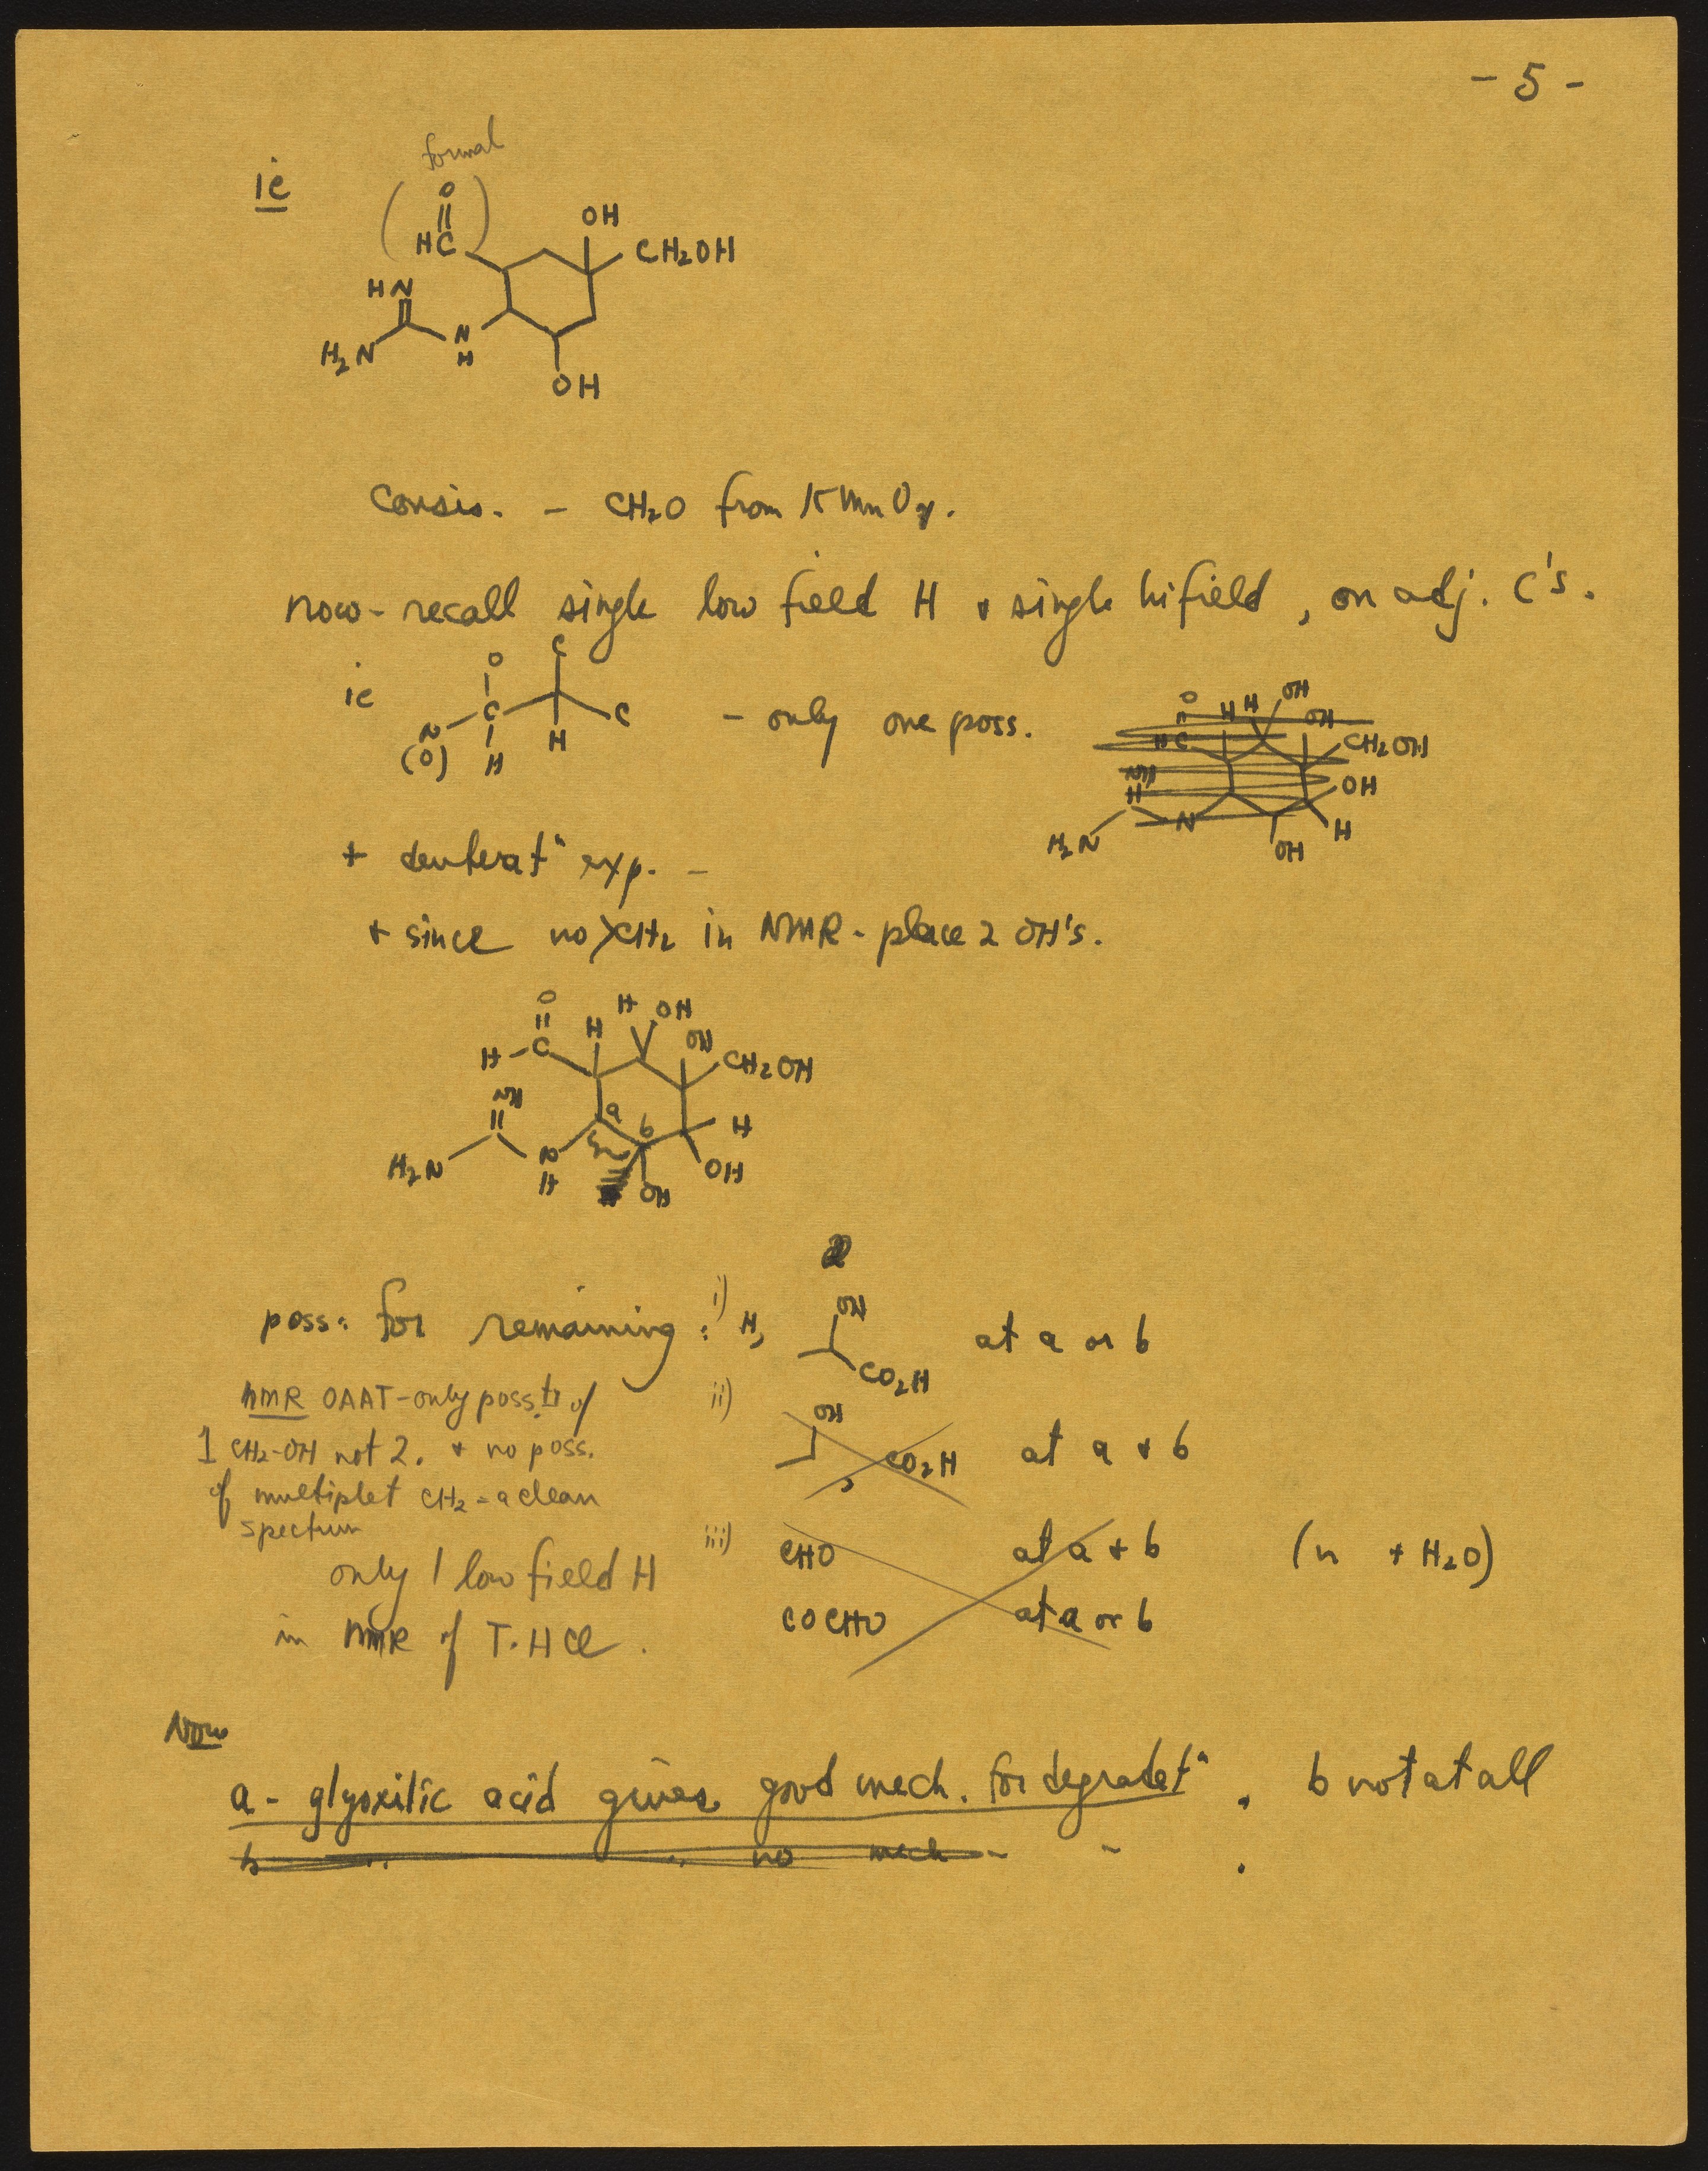 - 5 -
formal
ie
O
( HC )
OH
CH2OH
HN
H2N
N
H
OH
consis. - CH2O from KMnO4.
now - recall single low field H + single hifield, on adj. C's.
ie
O
C
N
(O)
C
H
H
C
- only one poss.
O
HC
H H
OH
OH
CH2OH
OH
H
NH
H2N
N
OH
+ deuterat" exp. -
+ since no CH2 in NMR - place 2 OH's.
O
H - C
H
H OH
OH
CH2OH
NH
a
b
H
OH
H2N
N
H
OH
poss. for remaining : i) H,
OH
CO2H
at a or b
nmr OAAT - only poss. of
1 CH2-OH not 2. + no poss.
of multiplet CH2 - a clean
spectrum
ii)
OH
, CO2H
at a + b
only 1 low field H
in NMR of T.HCl.
iii) CHO at a + b (+ H2O)
COCHO at a or b
Now
a - glyoxilic acid gives good mech. for degradat". b not at all
b " " no mech -